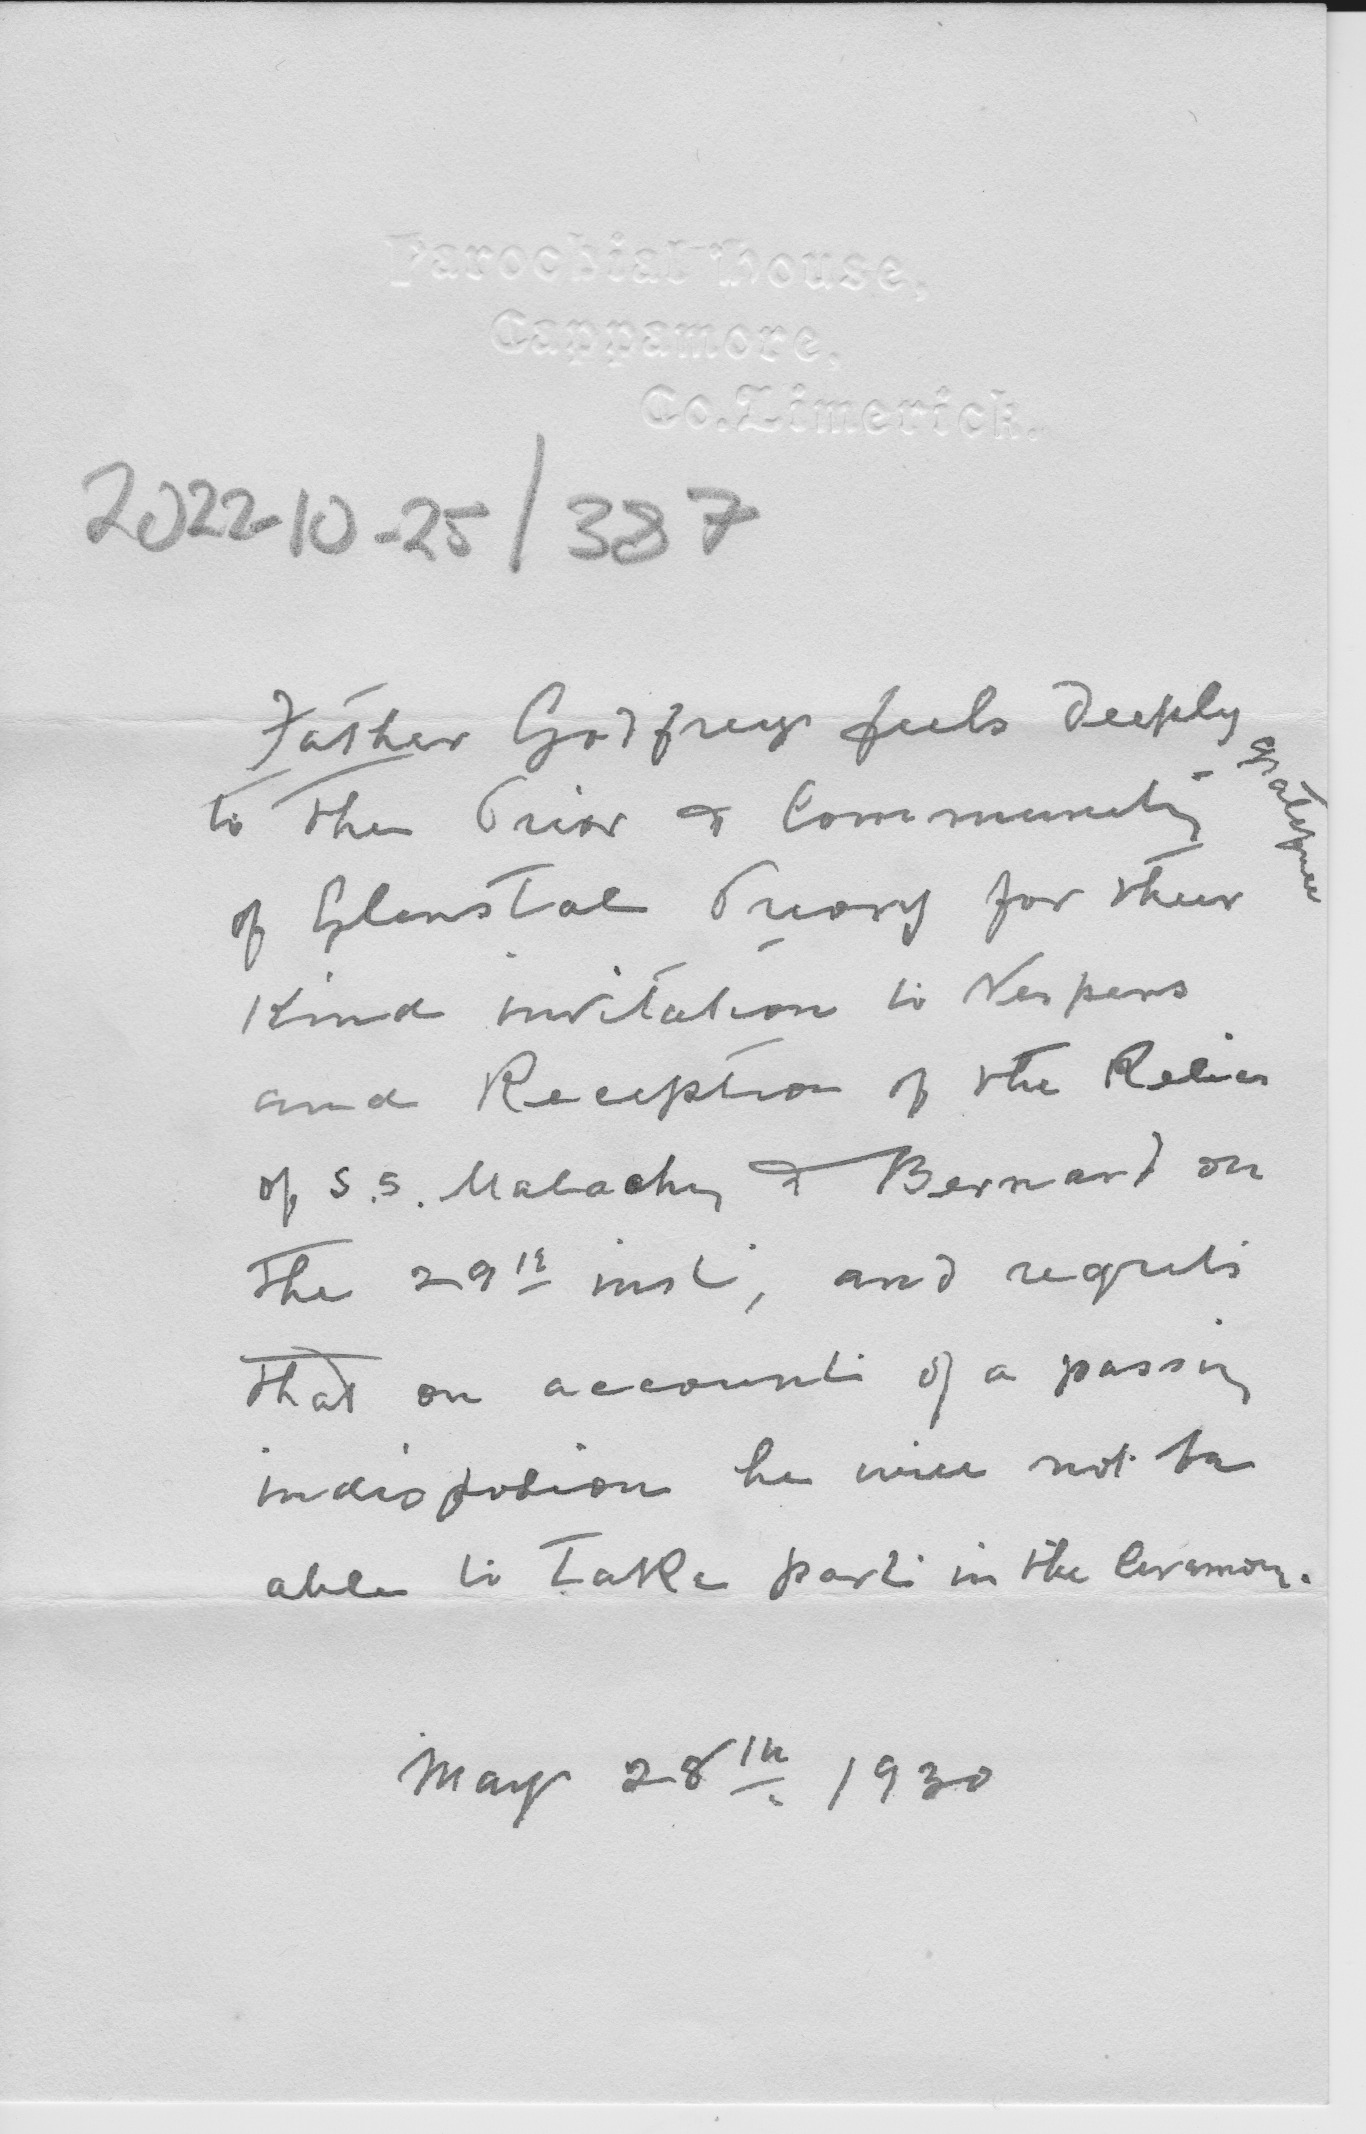 Parochial House,
Cappamore,
Co. Limerick.
2022-10-25/387
Father Godfrey feels deeply grateful
to the Prior & Community
of Glenstal Priory for their
kind invitation to Vespers
and Reception of the Relics
of S.S. Malachy & Bernard on
the 29th inst, and regrets
that on account of a passing
indispotion he will not be
able to take part in the Ceremony.
May 28th. 1930